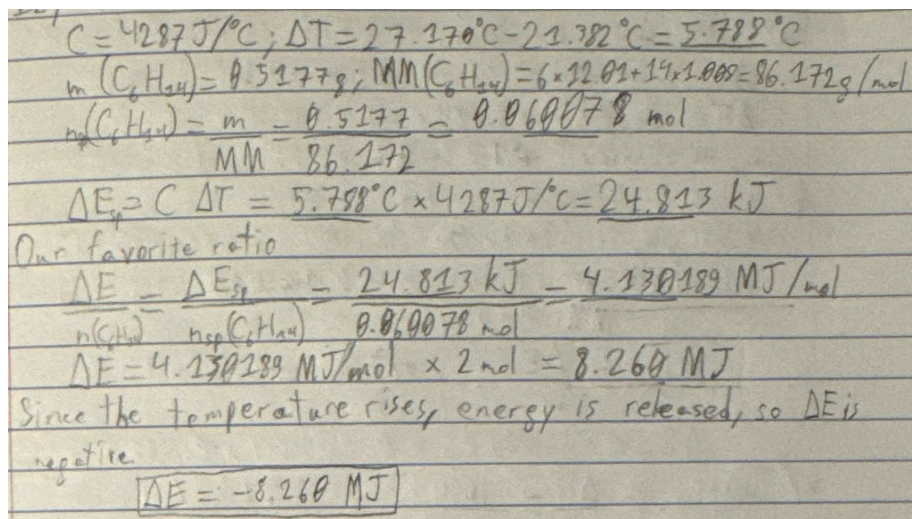 C = 4287 J/°C; ΔT = 27.170°C - 21.382°C = 5.788°C
m(C₆H₁₄) = 0.5177g; MM(C₆H₁₄) = 6×12.01+14×1.008 = 86.172g/mol
n_sp(C₆H₁₄) = m/MM = 0.5177/86.172 = 0.060078 mol
ΔE_sp = C ΔT = 5.788°C × 4287J/°C = 24.813 kJ
Our favorite ratio
ΔE/n(C₆H₁₄) = ΔE_sp/n_sp(C₆H₁₄) = 24.813 kJ/0.060078 mol = 4.130189 MJ/mol
ΔE = 4.130189 MJ/mol × 2 mol = 8.260 MJ
Since the temperature rises, energy is released, so ΔE is
negative
ΔE = -8.260 MJ